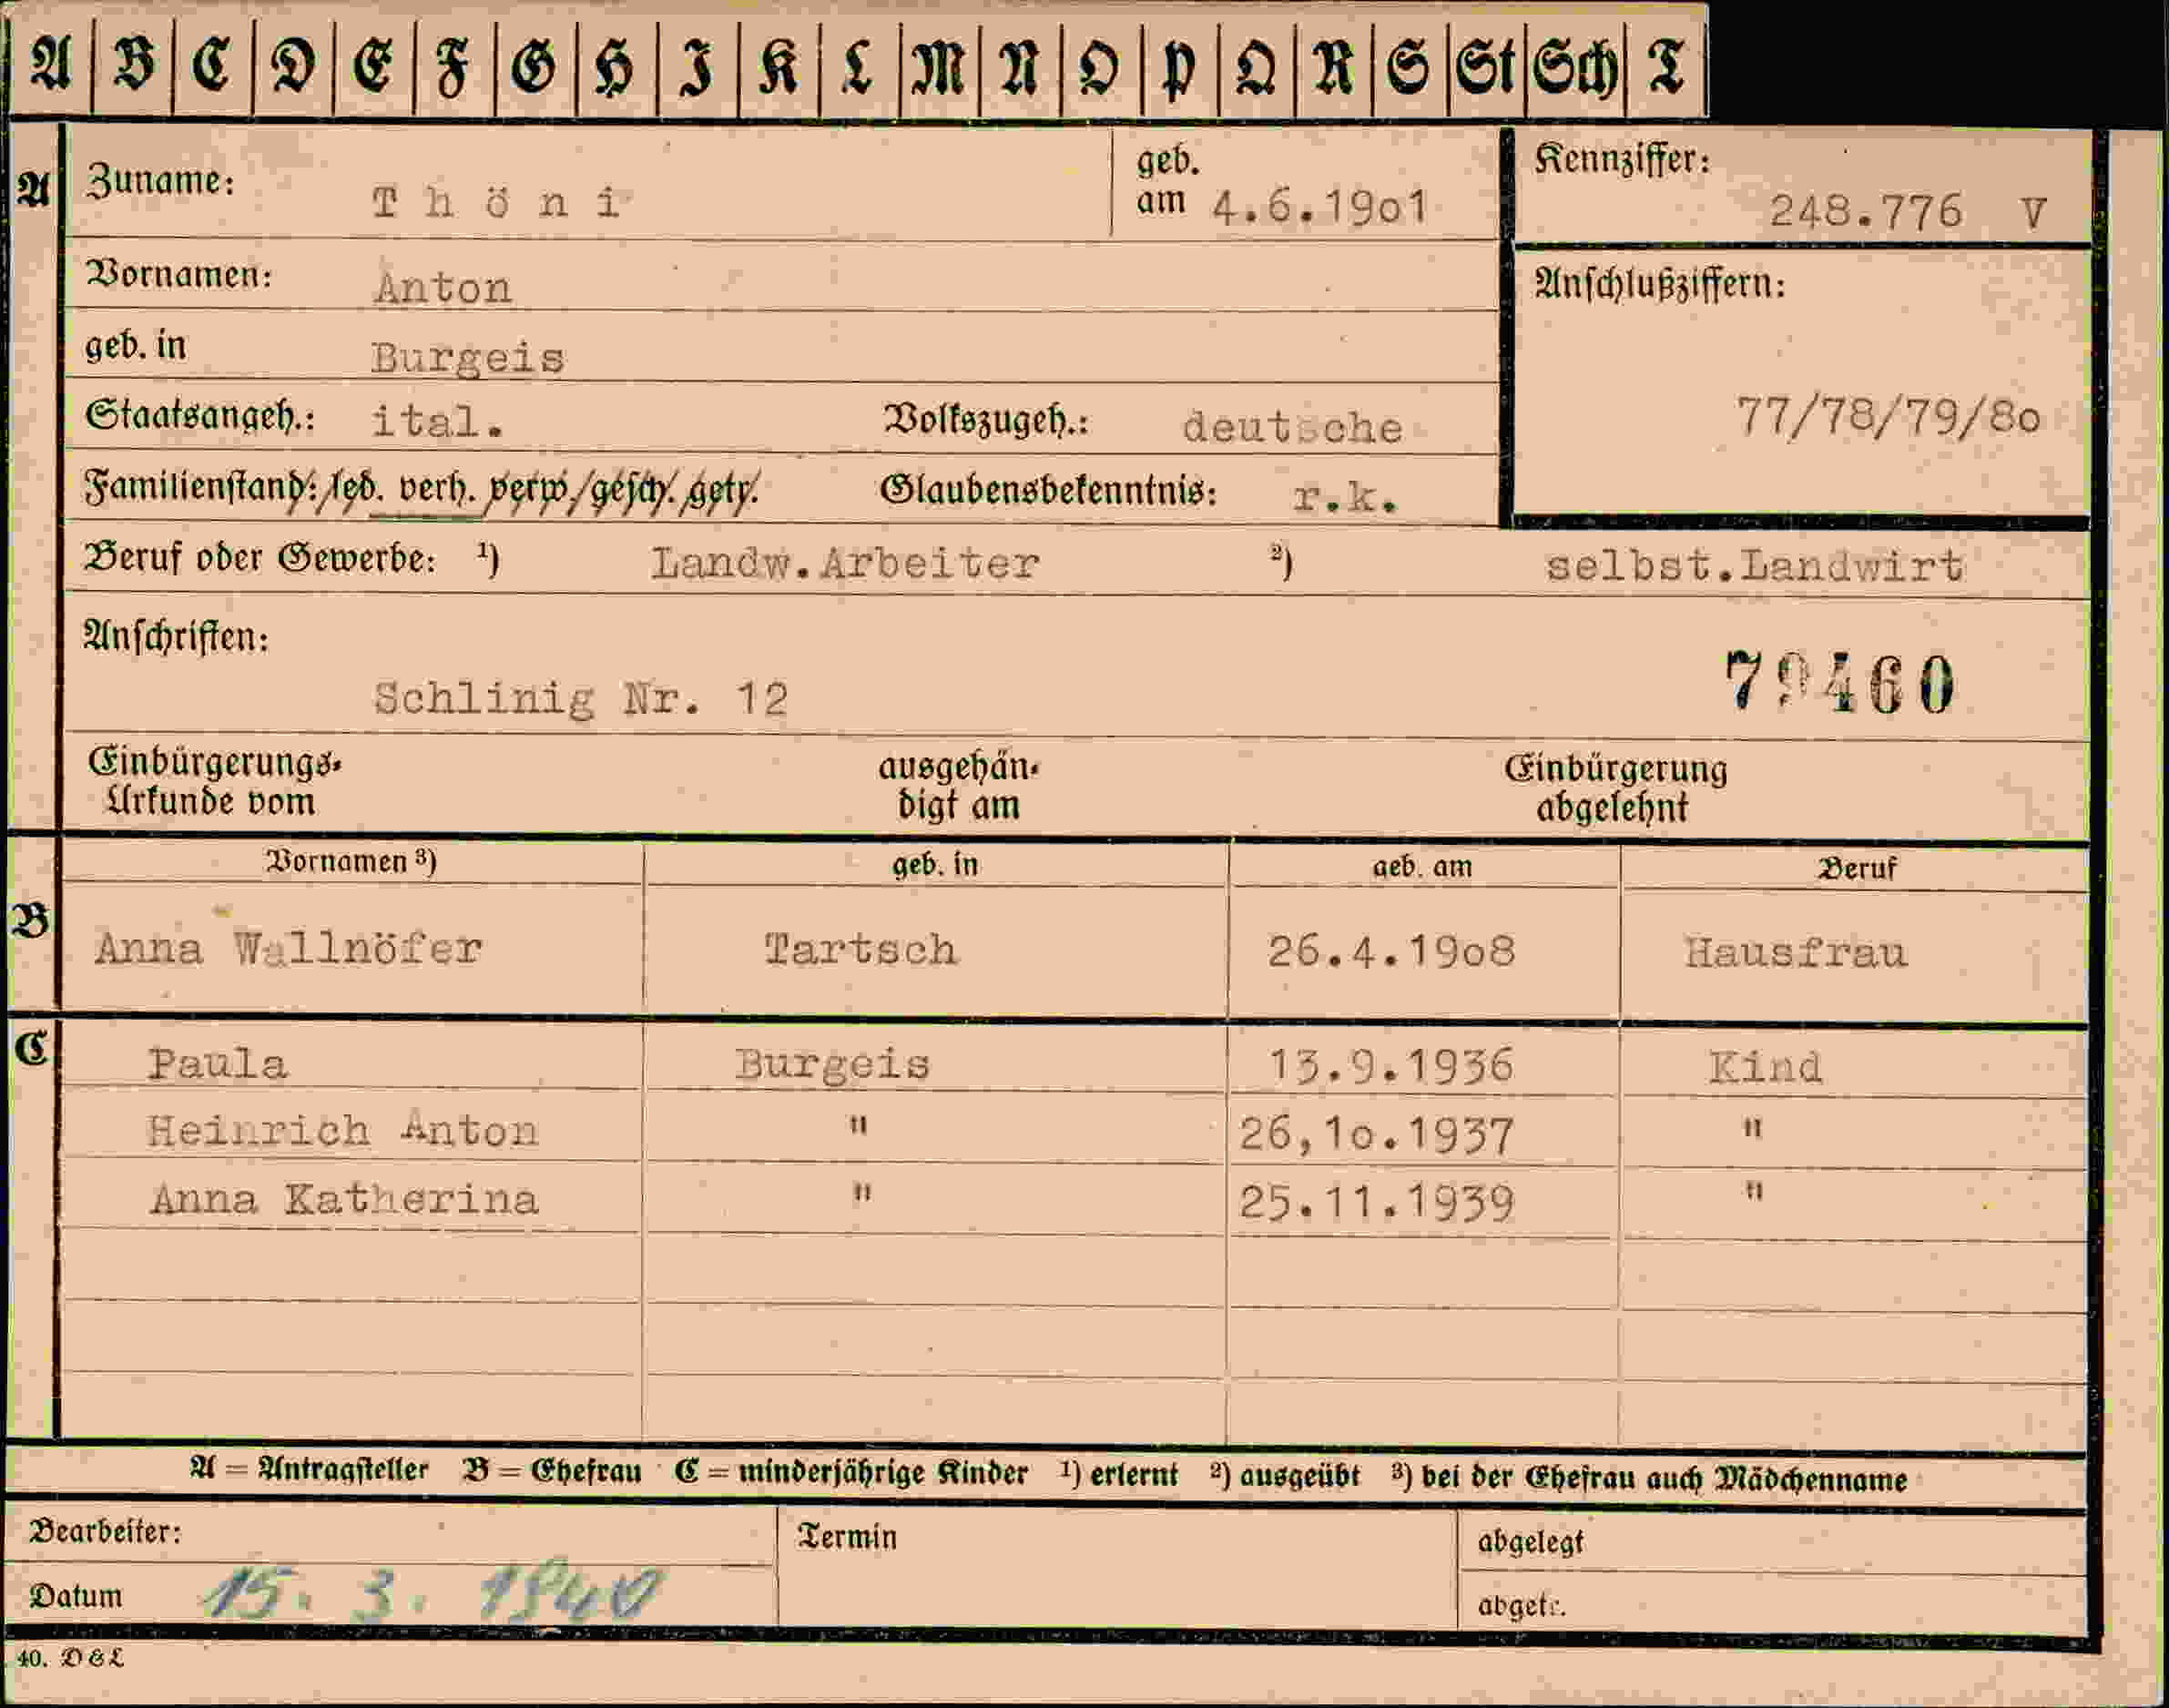 A B C D E F G H I K L M N O P Q R S St Sch T
A Zuname: Thöni geb. am 4.6.19o1 Kennziffer: 248.776 V
Vornamen: Anton Anschlußziffern:
geb. in Burgeis
Staatsangeh.: ital. Volkszugeh.: deutsche 77/78/79/8o
Familienstand: led. verh. verw. gesch. getr. Glaubensbekenntnis: r.k.
Beruf oder Gewerbe: ¹) Landw.Arbeiter ²) selbst.Landwirt
Anschriften:
Schlinig Nr. 12 79460
Einbürgerungs- ausgehän- Einbürgerung
Urkunde vom digt am abgelehnt
Vornamen ³) geb. in geb. am Beruf
B Anna Wallnöfer Tartsch 26.4.19o8 Hausfrau
C Paula Burgeis 13.9.1936 Kind
Heinrich Anton " 26,1o.1937 "
Anna Katherina " 25.11.1939 "
A = Antragsteller B = Ehefrau C = minderjährige Kinder ¹) erlernt ²) ausgeübt ³) bei der Ehefrau auch Mädchenname
Bearbeiter: Termin abgelegt
Datum 15. 3. 1940 abgetr.
40. D & L